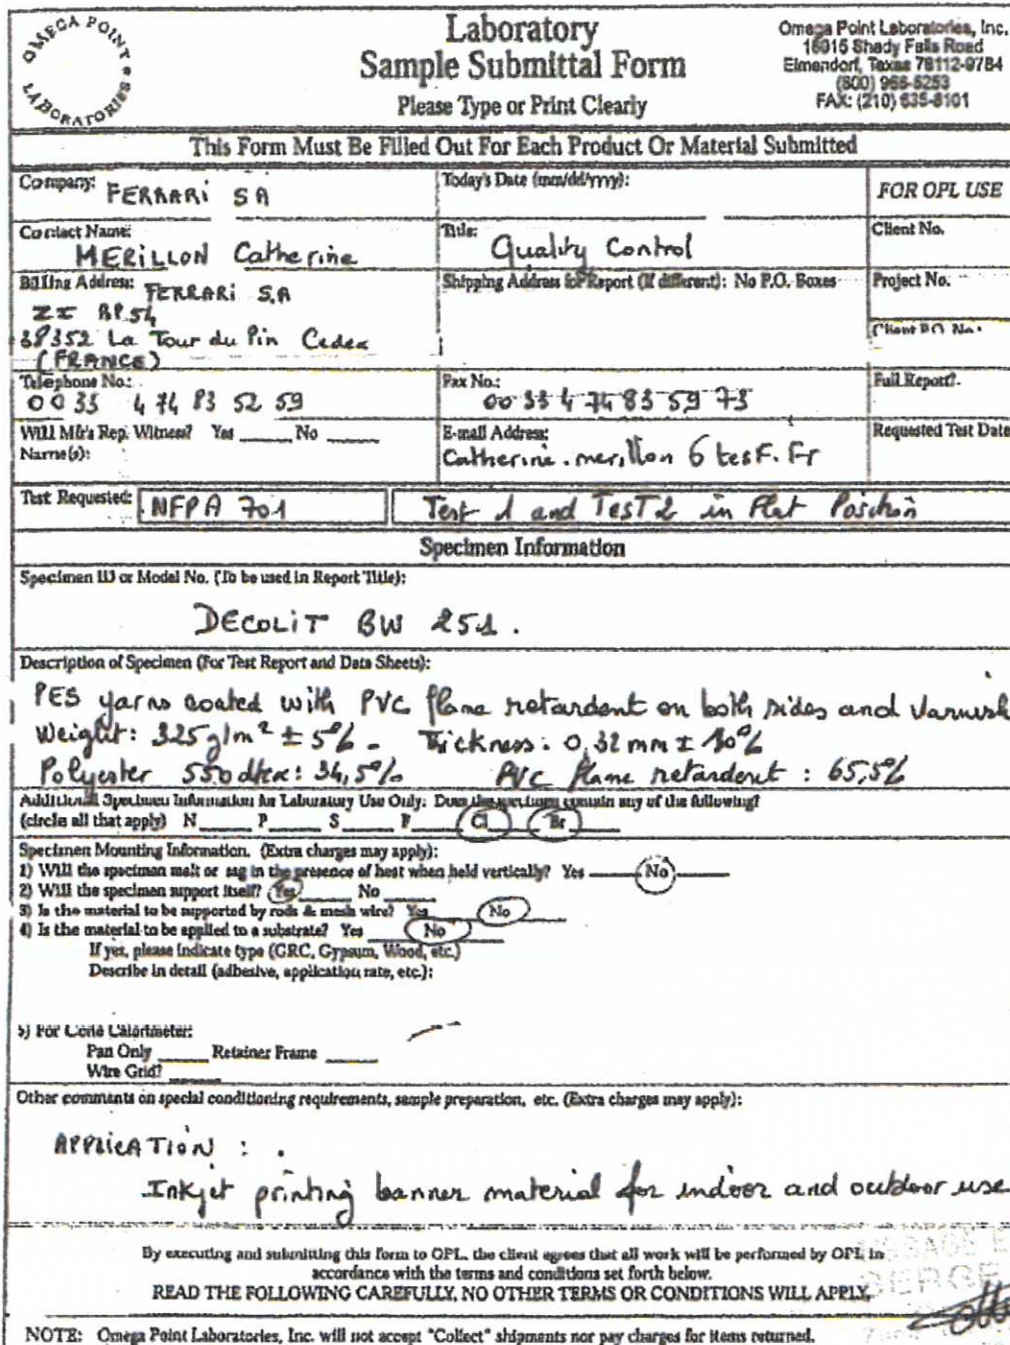 OMEGA POINT
LABORATORIES
Laboratory
Sample Submittal Form
Please Type or Print Clearly
Omega Point Laboratories, Inc.
16015 Shady Falls Road
Elmendorf, Texas 78112-9784
(800) 966-5253
FAX: (210) 635-8101
This Form Must Be Filled Out For Each Product Or Material Submitted
Company: FERRARI SA
Today's Date (mm/dd/yyyy):
FOR OPL USE
Contact Name: MERILLON Catherine
Title: Quality Control
Client No.
Billing Address: FERRARI S.A
ZI BP.54
38352 La Tour du Pin Cedex
(FRANCE)
Shipping Address for Report (If different): No P.O. Boxes
Project No.
Client P.O. No.:
Telephone No.:
00 33 4 74 83 52 59
Fax No.:
00 33 4 74 83 59 73
Full Report?
Will Mfr's Rep. Witness? Yes ____ No ____
Name(s):
E-mail Address:
Catherine.merillon 6 tesF.Fr
Requested Test Date
Test Requested: NFPA 701 Test 1 and Test 2 in Flat Position
Specimen Information
Specimen ID or Model No. (To be used in Report Title):
DECOLIT BW 251.
Description of Specimen (For Test Report and Data Sheets):
PES yarns coated with PVC flame retardent on both sides and varnish
Weight: 325 g/m² ± 5% - Thickness: 0,32 mm ± 10%
Polyester 550 dtex: 34,5% PVC flame retardent: 65,5%
Additional Specimen Information for Laboratory Use Only: Does the specimen contain any of the following?
(circle all that apply) N____ P____ S____ F____ Cl____ Br____
Specimen Mounting Information. (Extra charges may apply):
1) Will the specimen melt or sag in the presence of heat when held vertically? Yes ____ No ____
2) Will the specimen support itself? Yes ____ No ____
3) Is the material to be supported by rods & mesh wire? Yes ____ No ____
4) Is the material to be applied to a substrate? Yes ____ No ____
If yes, please indicate type (GRC, Gypsum, Wood, etc.)
Describe in detail (adhesive, application rate, etc.):
5) For Cone Calorimeter:
Pan Only ____ Retainer Frame ____
Wire Grid? ____
Other comments on special conditioning requirements, sample preparation, etc. (Extra charges may apply):
APPLICATION :
Inkjet printing banner material for indoor and outdoor use
By executing and submitting this form to OPL, the client agrees that all work will be performed by OPL in
accordance with the terms and conditions set forth below.
READ THE FOLLOWING CAREFULLY, NO OTHER TERMS OR CONDITIONS WILL APPLY.
NOTE: Omega Point Laboratories, Inc. will not accept "Collect" shipments nor pay charges for items returned.